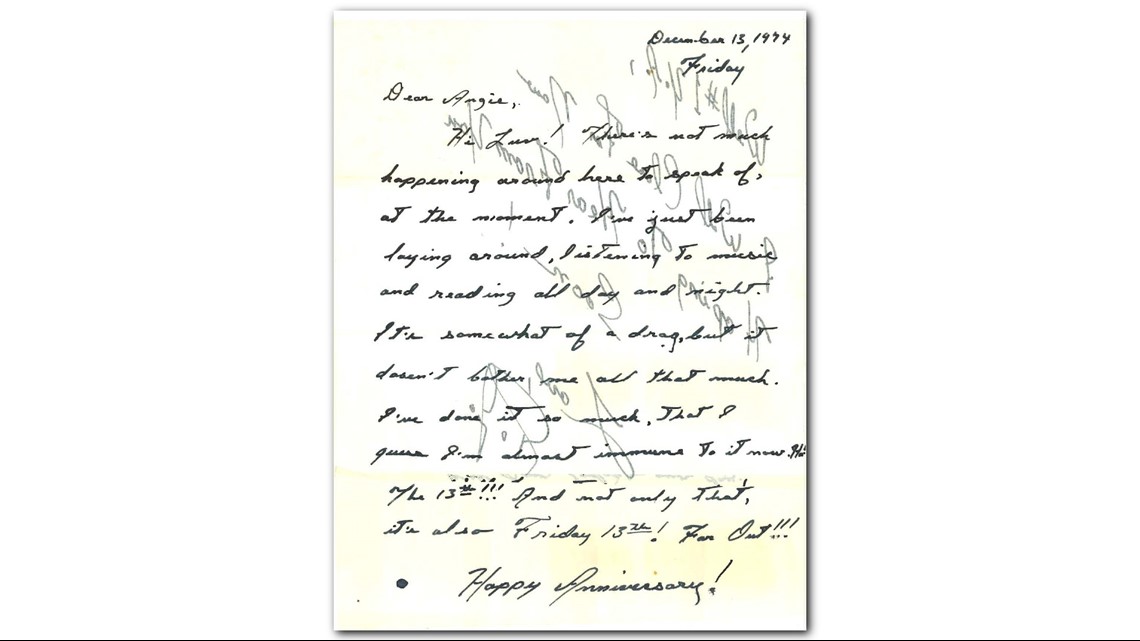 December 13, 1974
Friday
Dear Angie,
Hi Luv! There's not much
happening around here to speak of,
at the moment. I've just been
laying around, listening to music
and reading all day and night.
It's somewhat of a drag, but it
doesn't bother me all that much.
I've done it so much, that I
guess I'm almost immune to it now.
The 13th!!! And not only that,
it's also Friday 13th! Far Out!!!
Happy Anniversary!